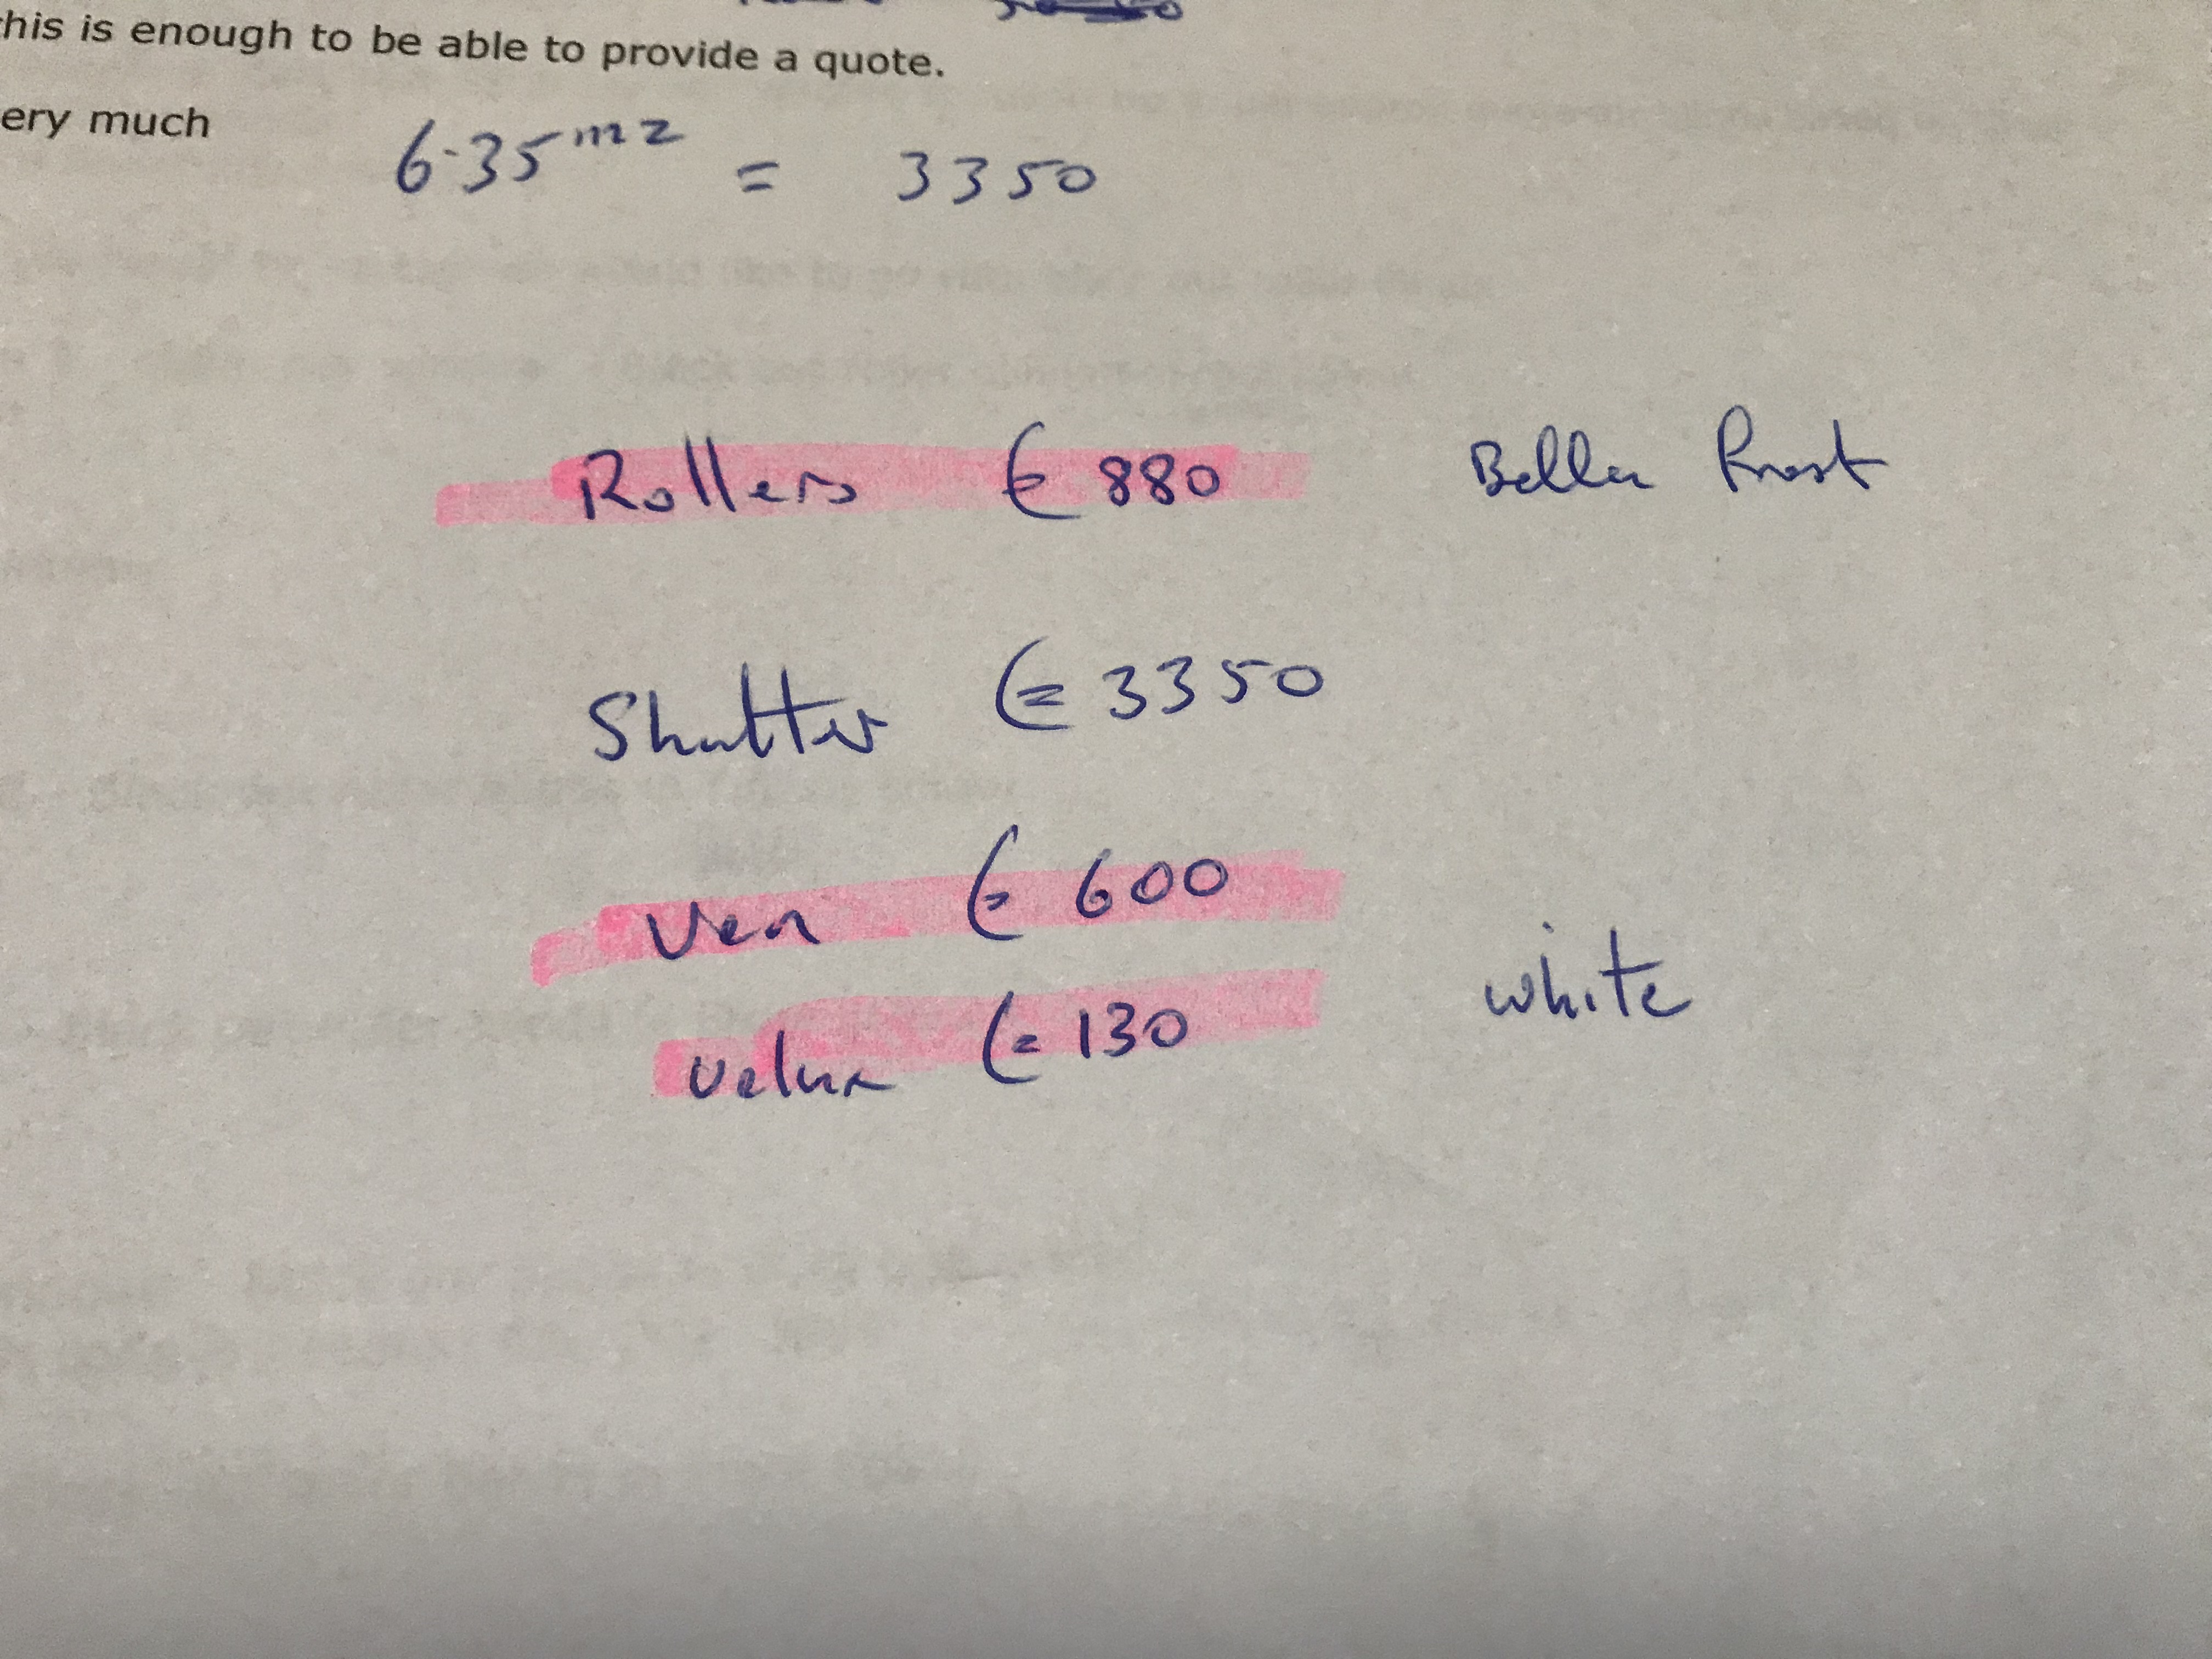 this is enough to be able to provide a quote.
ery much
6.35m2 = 3350
Rollers € 880 Bella
Shutter € 3350
Ven € 600
Velux € 130 white